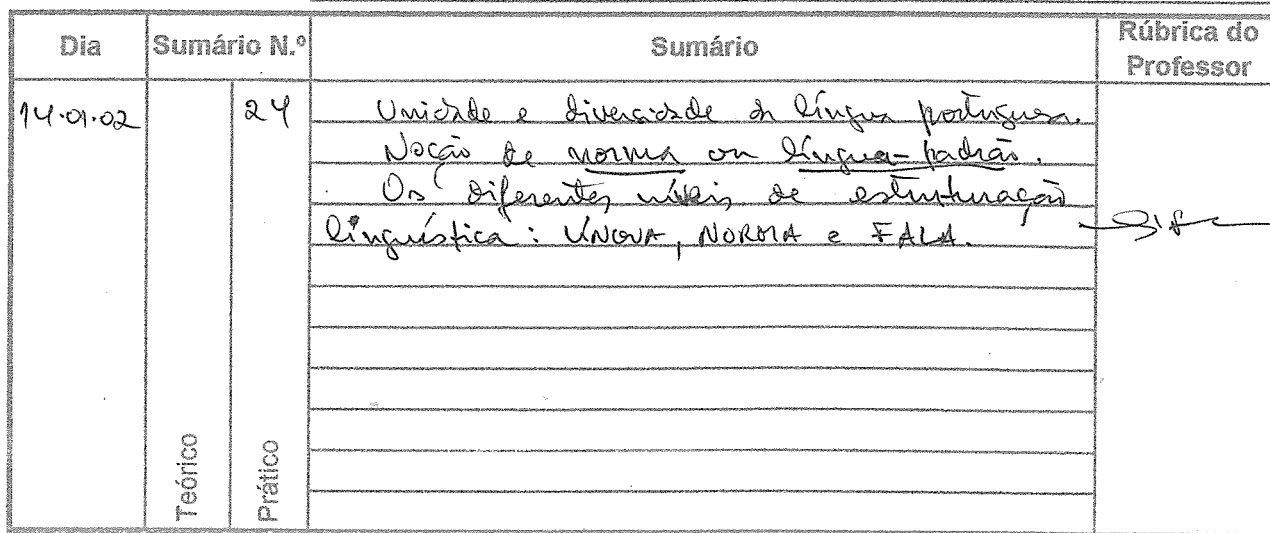 Dia Sumário N.º Sumário Rúbrica do Professor
14.01.02 24 Unidade e diversidade da língua portuguesa.
Noção de norma ou língua-padrão.
Os diferentes níveis de estruturação
linguística: LÍNGUA, NORMA e FALA.
Teórico Prático